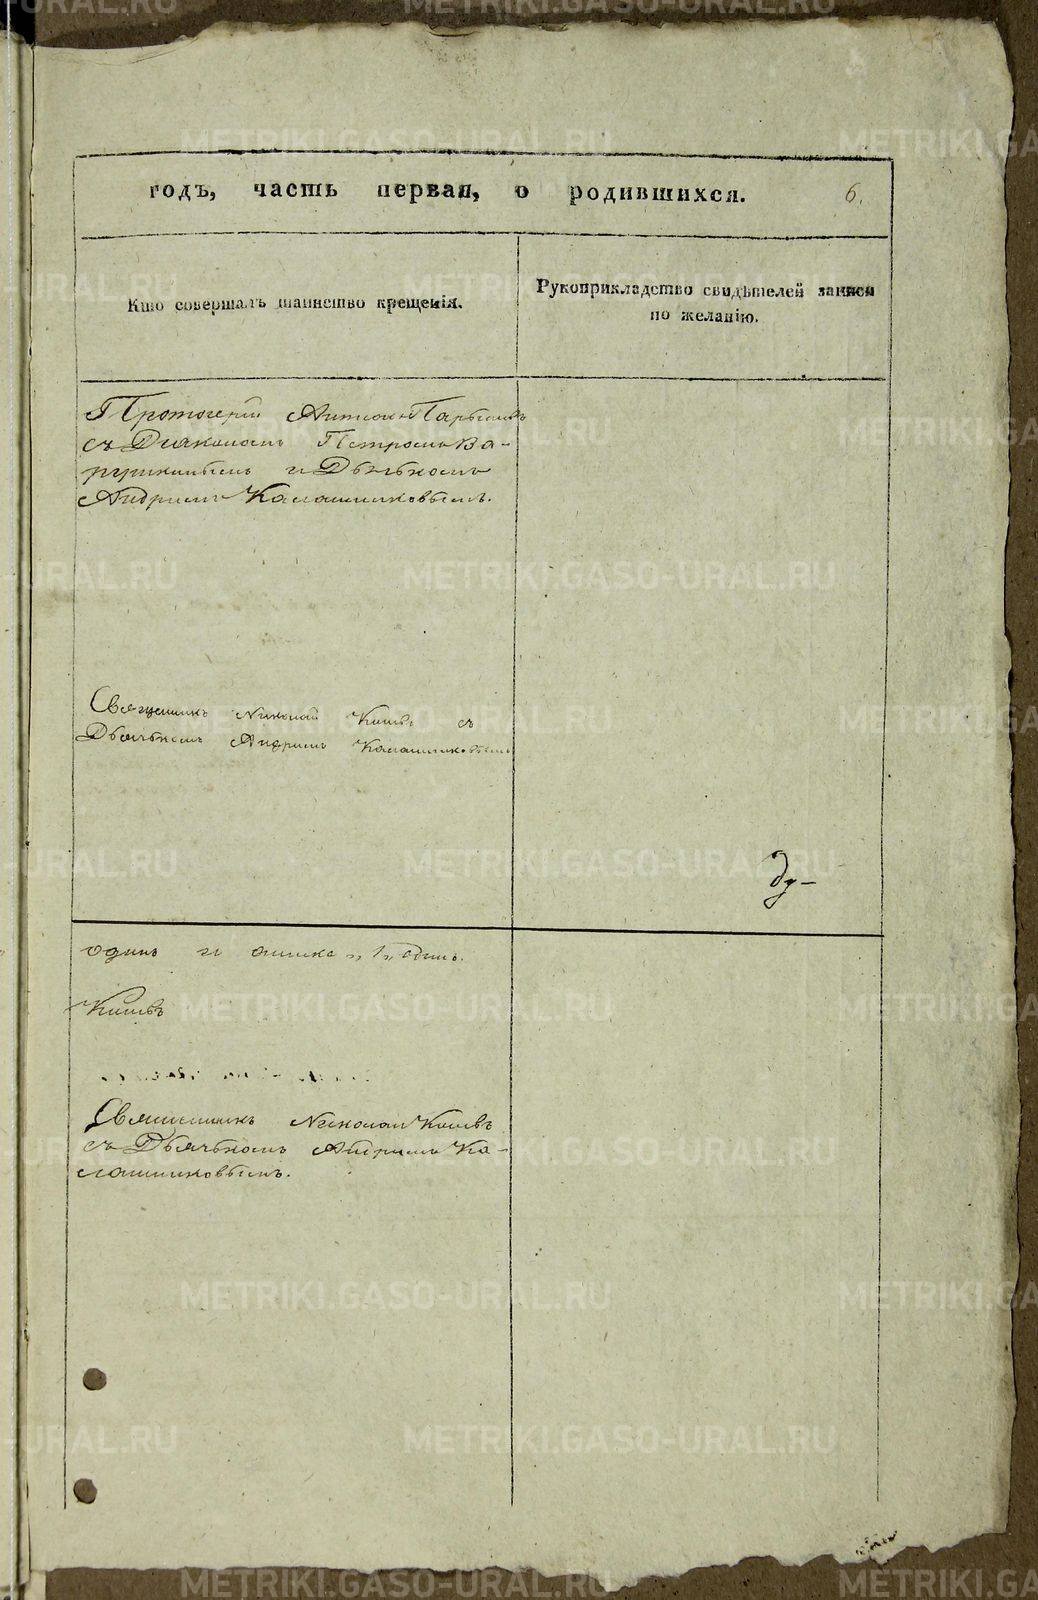 годъ, часть первая, о родившихся.
6.
Кто совершалъ таинство крещенія.
Рукоприкладство свидѣтелей записи
по желанію.
Протоіерей
съ Діакономъ Петромъ Ва-
рушкинымъ и Дьячкомъ
Андреемъ Калашниковымъ.
Священникъ Николай съ
Дьячкомъ Андреемъ Калашниковымъ
ду-
одинъ и одинъ.
Священникъ Николай
съ Дьячкомъ Андреемъ Ка-
лашниковымъ.
METRIKI.GASO-URAL.RU